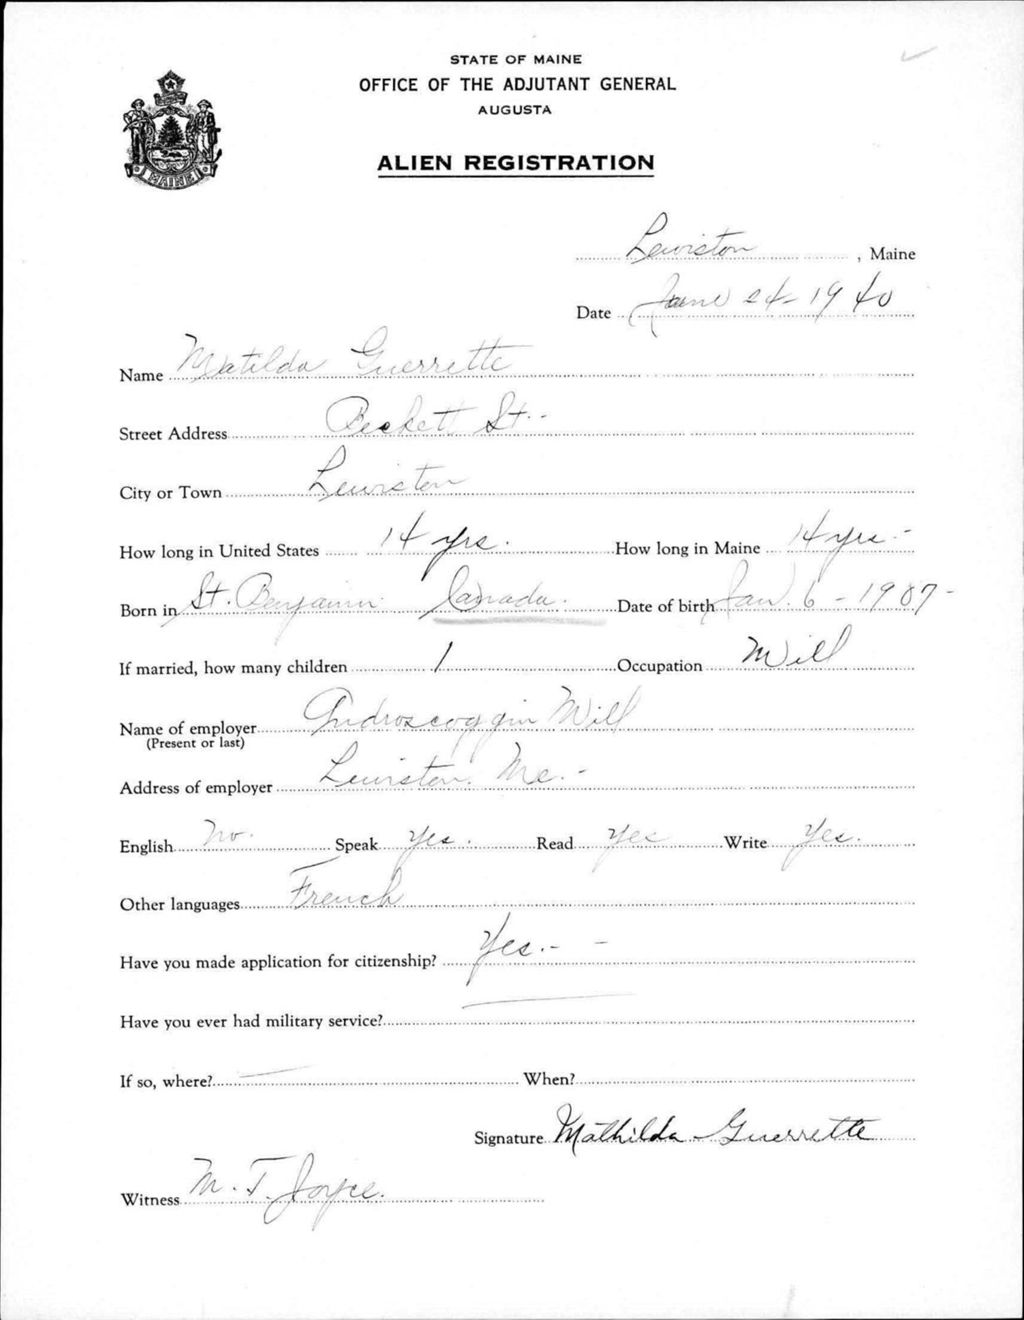 STATE OF MAINE
OFFICE OF THE ADJUTANT GENERAL
AUGUSTA
ALIEN REGISTRATION
MAINE
Lewiston, Maine
Date June 24-1940
Name Matilda Guerrette
Street Address Beckett St.-
City or Town Lewiston
How long in United States 14 yrs. How long in Maine 14 yrs.-
Born in St. Benjamin Canada. Date of birth Jan. 6-1907-
If married, how many children 1 Occupation Mill
Name of employer Androscoggin Mill
(Present or last)
Address of employer Lewiston. Me.-
English No. Speak Yes. Read Yes Write Yes.
Other languages French
Have you made application for citizenship? Yes.- -
Have you ever had military service? —
If so, where? — When?
Signature Mathilda Guerrette
Witness M. T. Joyce.